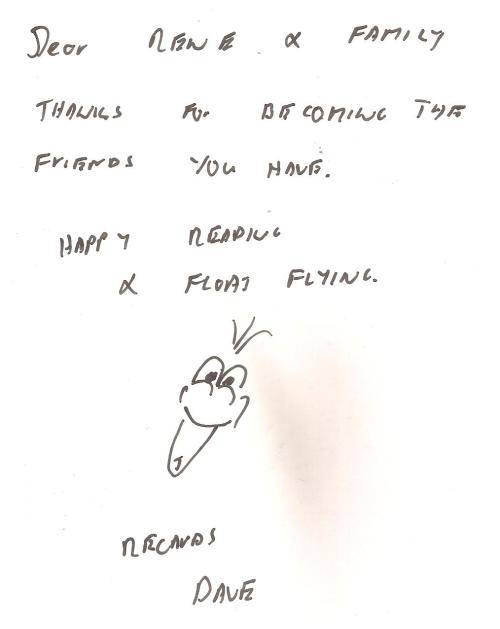 Dear RENE & FAMILY
THANKS FOR BECOMING THE
FRIENDS YOU HAVE.
HAPPY READING
& FLOAT FLYING.
REGARDS
DAVE